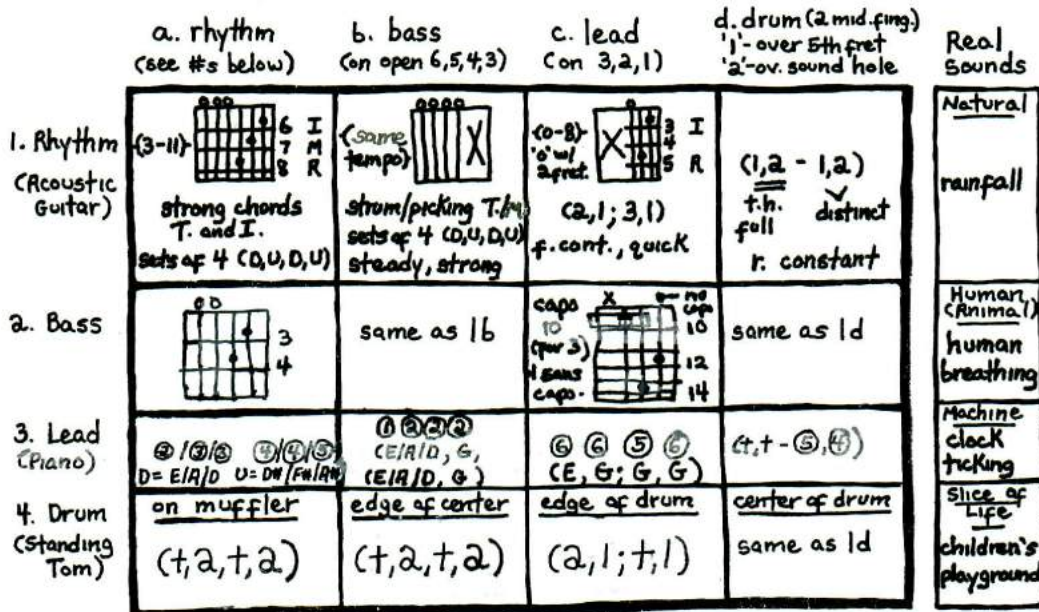 a. rhythm
(see #s below)
b. bass
(on open 6,5,4,3)
c. lead
(on 3,2,1)
d. drum (2 mid. fing.)
'1'-over 5th fret
'2'-ov. sound hole
Real
Sounds
1. Rhythm
(Acoustic
Guitar)
(3-11)
6 I
7 M
8 R
strong chords
T. and I.
sets of 4 (D,U,D,U)
(same
tempo)
X
strum/picking T./
sets of 4 (D,U,D,U)
steady, strong
(0-8)
'0' w/
2 fret.
X
3 I
4
5 R
(2,1; 3,1)
f. cont., quick
(1,2 - 1,2)
t.h.
full
distinct
r. constant
Natural
rainfall
2. Bass
3
4
same as 1b
capo
10
(for 3)
1 sans
capo.
X
no
capo
10
12
14
same as 1d
Human
(Animal)
human
breathing
3. Lead
(Piano)
2/3/3 4/4/5
D= E/A/D U= D#/F#/A#
1 2 2 2
(E/A/D, G,
(E/A/D, G)
6 6 5 6
(E, G; G, G)
(t,t - 5,4)
Machine
clock
ticking
4. Drum
(Standing
Tom)
on muffler
(t,2,t,2)
edge of center
(t,2,t,2)
edge of drum
(2,1; t,1)
center of drum
same as 1d
Slice of
Life
children's
playground